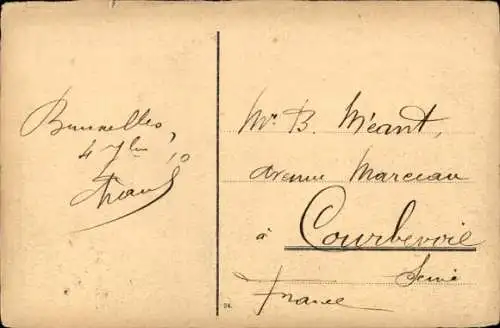 Bruxelles,
4 7bre 10
Mr. B. Méant,
Avenue Marceau
à Courbevoie
Seine
France